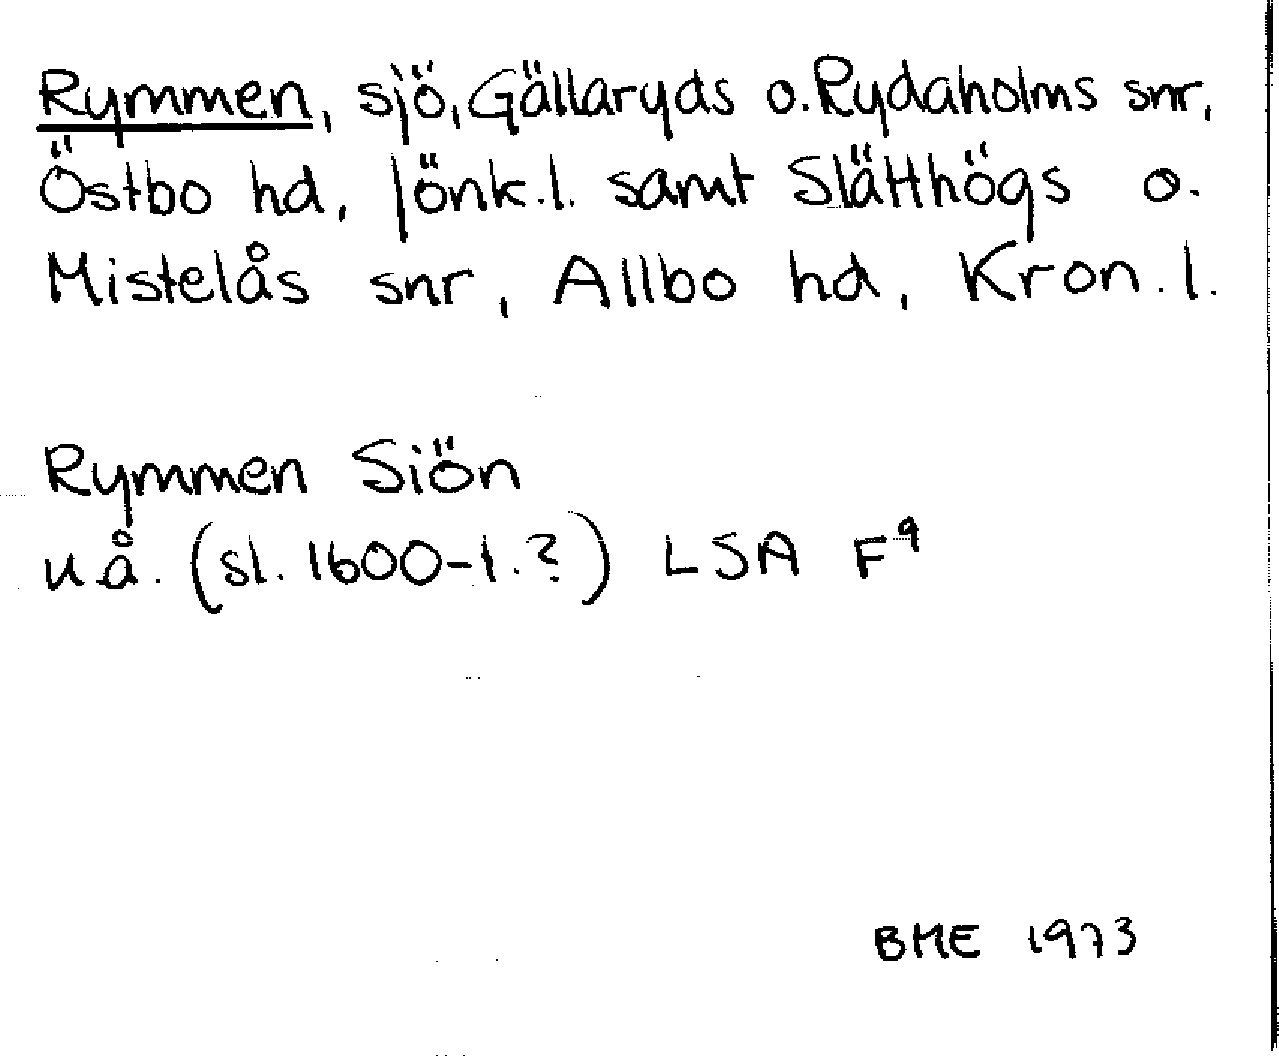 Rymmen, sjö, Gällaryds o. Rydaholms snr,
Östbo hd, Jönk.l. samt Slätthögs o.
Mistelås snr, Allbo hd, Kron.l.
Rymmen Siön
u å. (sl. 1600-t.?) LSA F⁹
BME 1973